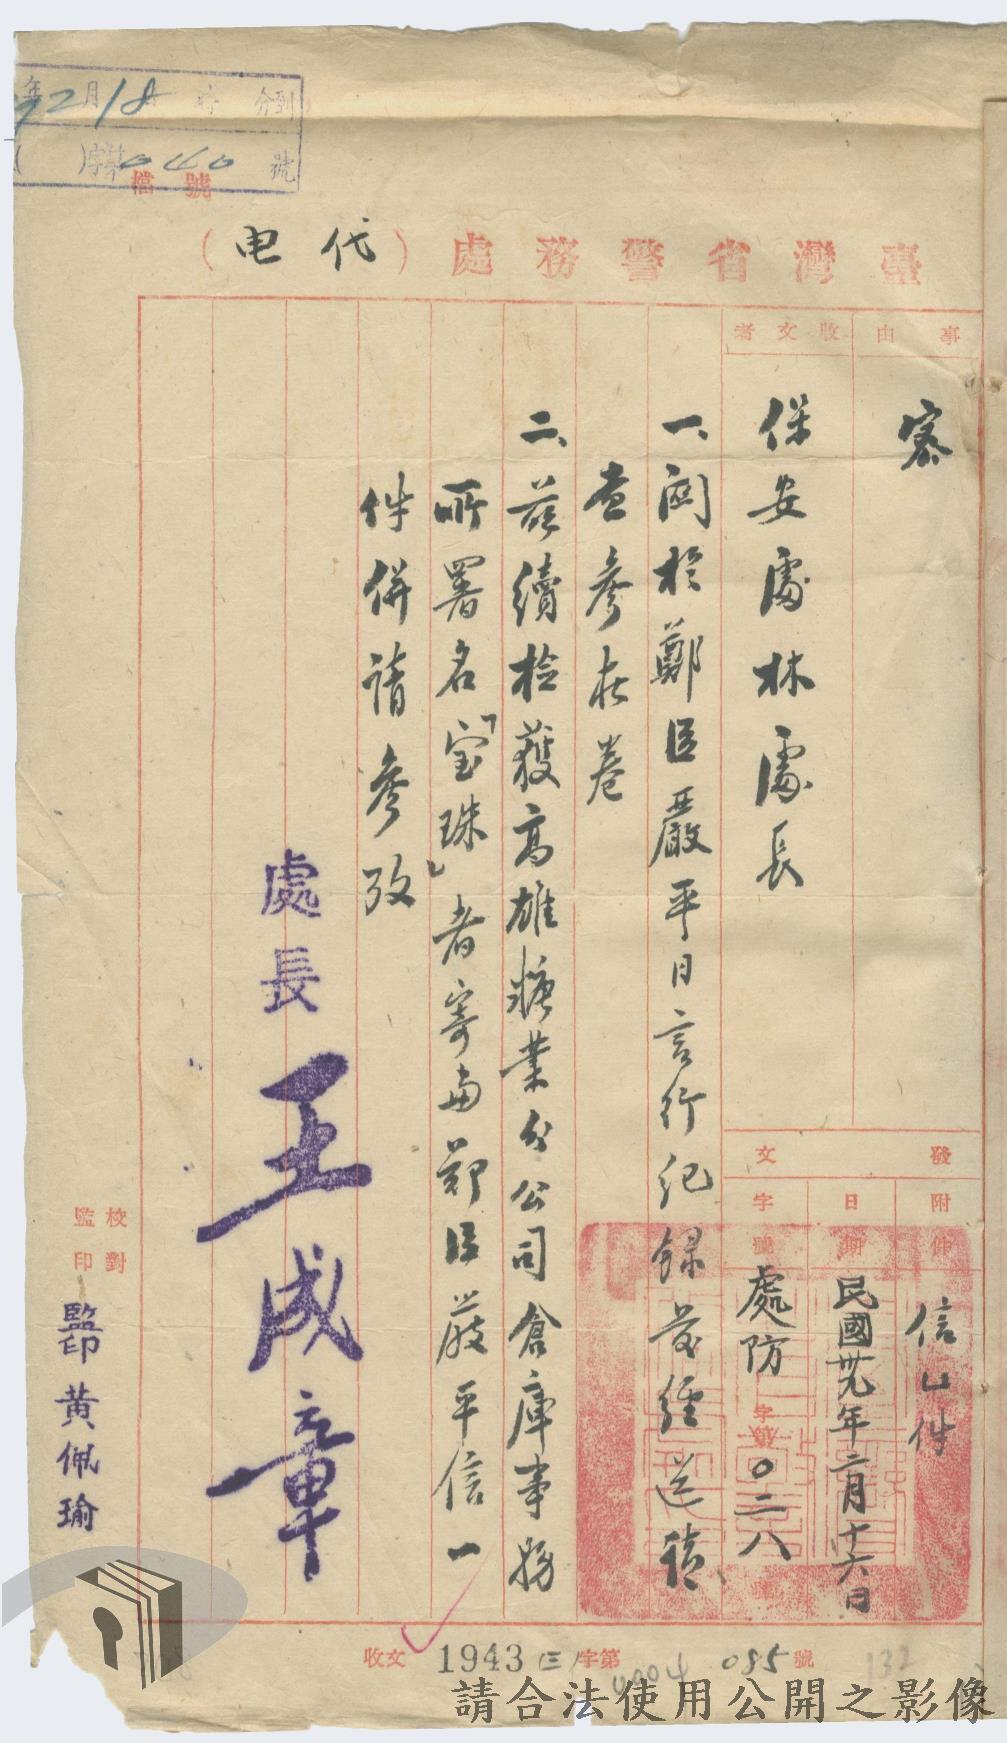 年 月 時 分到
2 18
字第 040 號
檔 號
臺灣省警務處(代电)
事由
密
收文者
保安處林處長
發文
附件
信乙件
日期
民國卅九年二月十六日
字號
處防字第〇二八號
一、関於鄭臣嚴平日言行紀録業經送請
查參在卷
二、茲續檢獲高雄糖業分公司倉庫事務
所署名「宝珠」者寄由鄭臣嚴平信一
件併請參攷
處長 王成章
校對
監印
監印 黃佩瑜
收文 1943 字第 085 號
132
請合法使用公開之影像